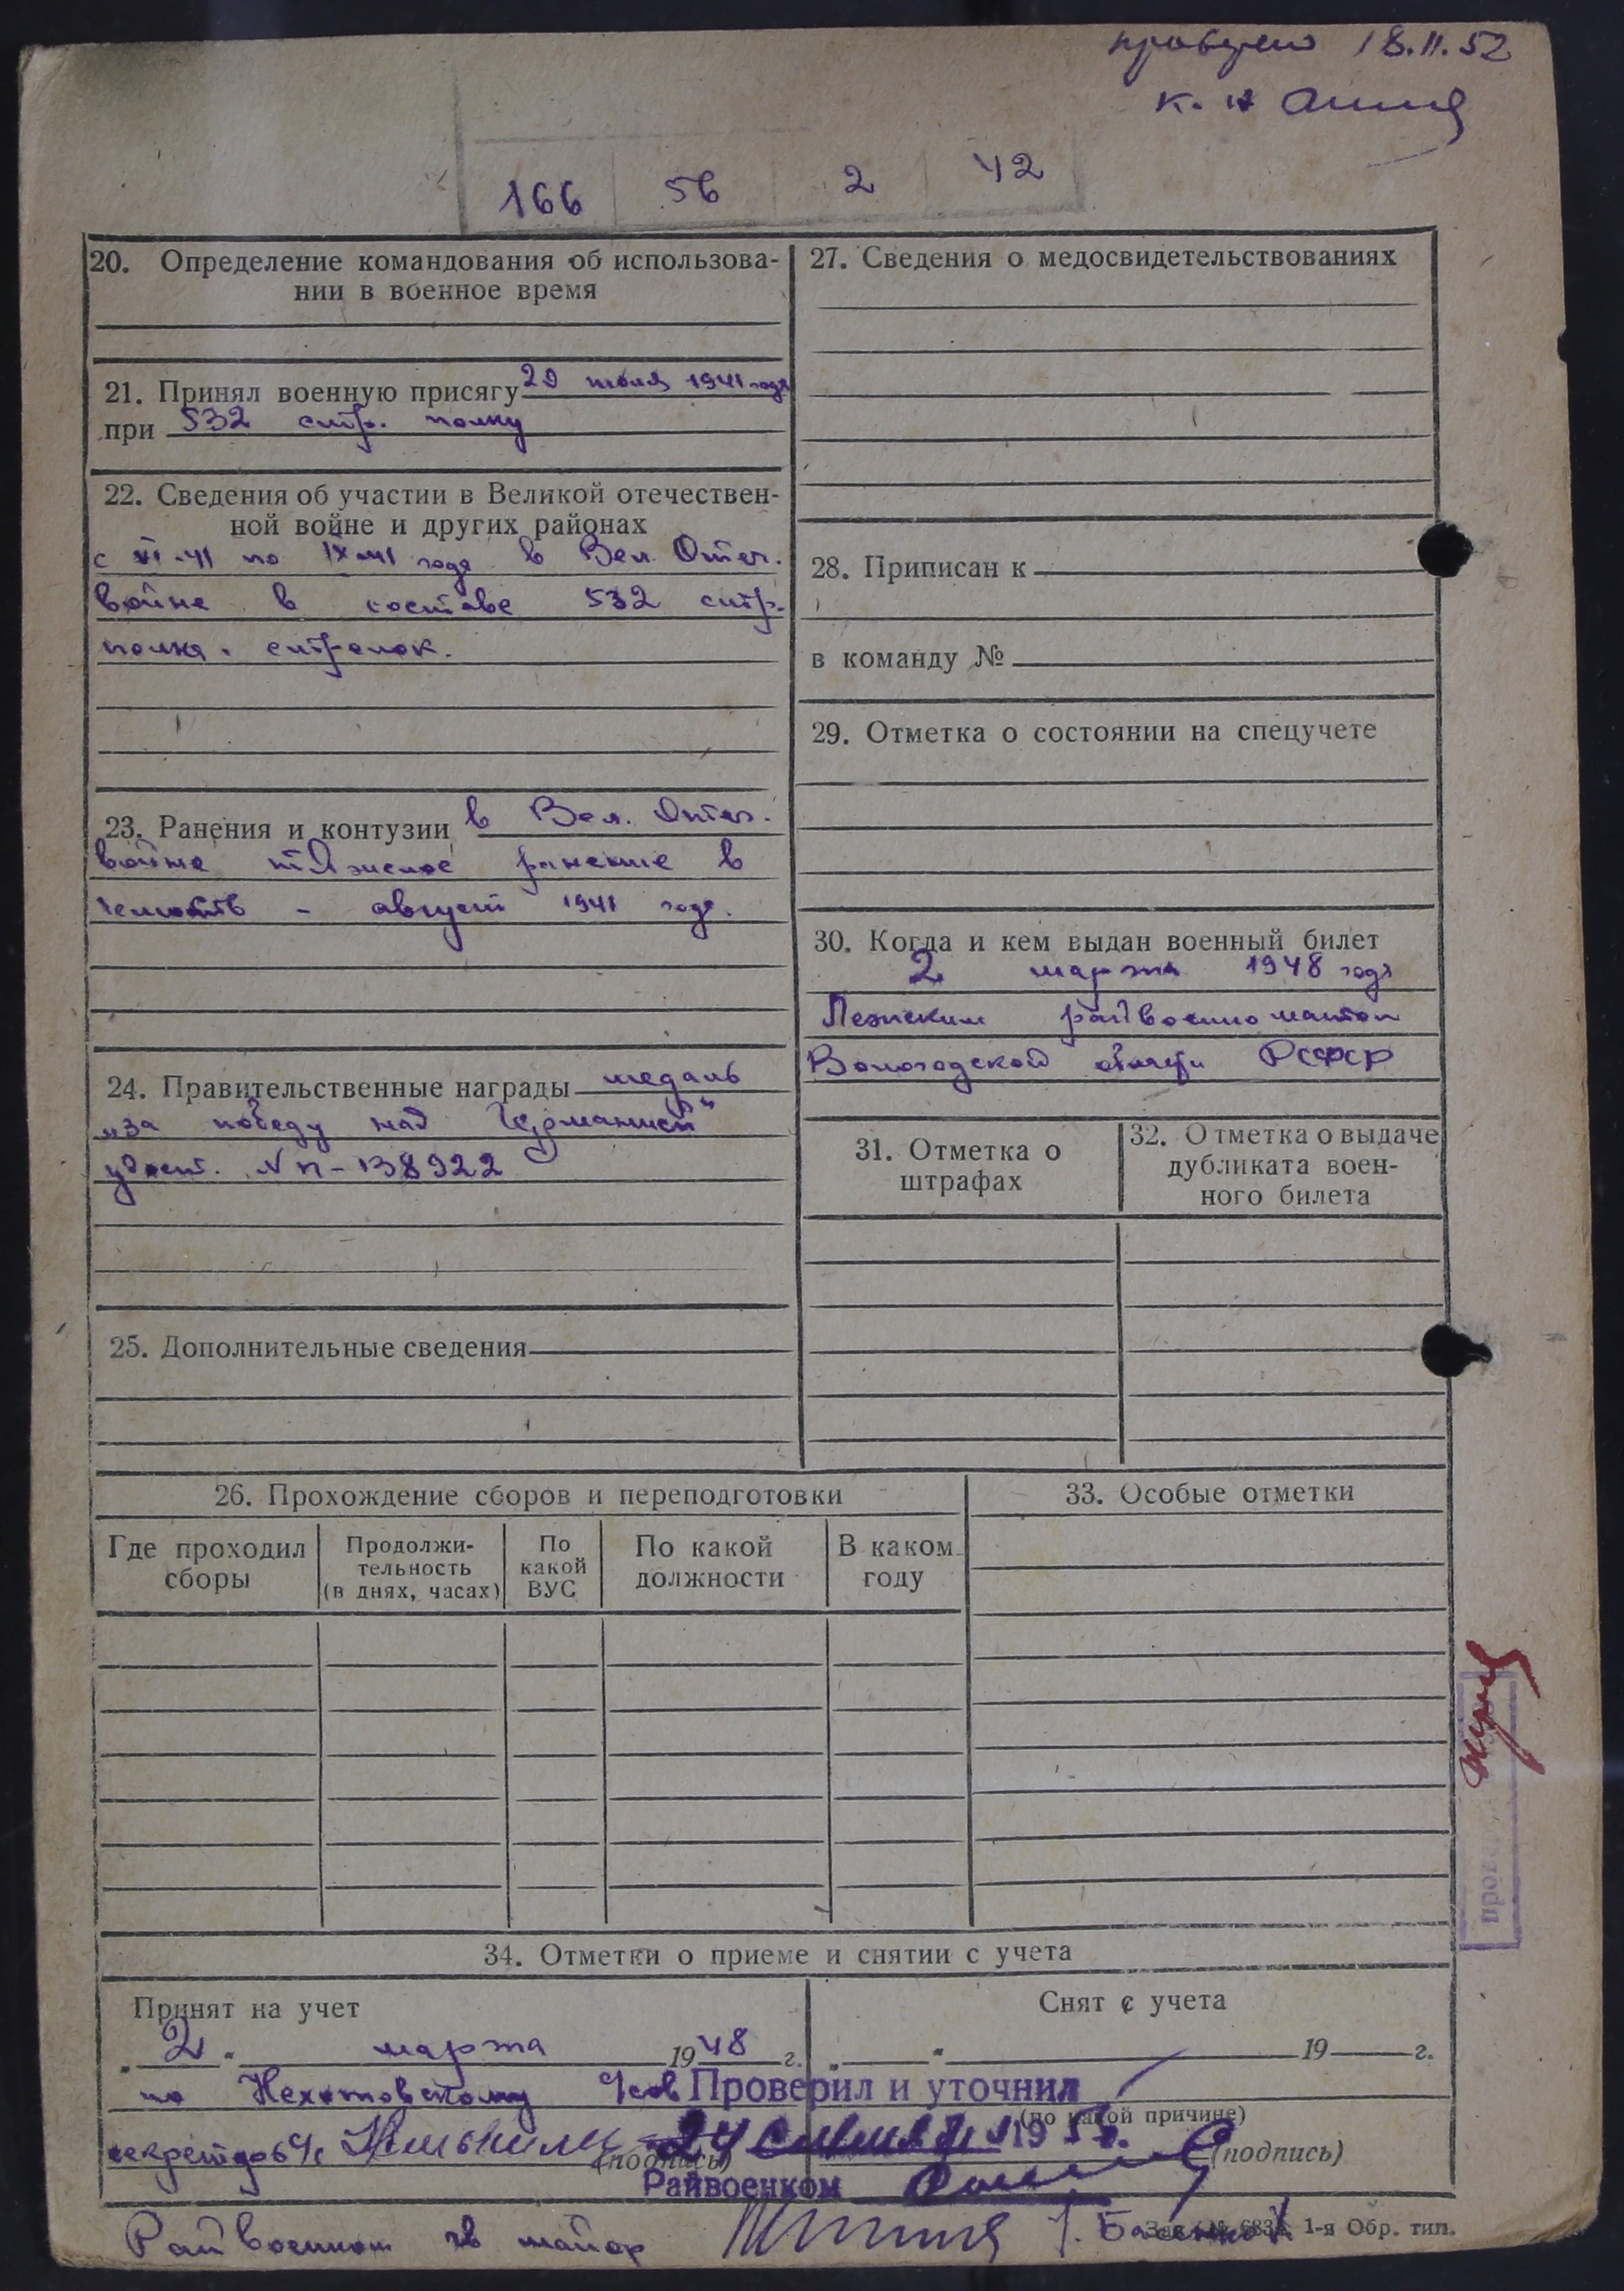 проверено 18.II.52
к. н
166 56 2 42
20. Определение командования об использова-
нии в военное время
21. Принял военную присягу 20 июля 1941 года
при 532 стр. полку
22. Сведения об участии в Великой отечествен-
ной войне и других районах
с VI-41 по IX-41 года в Вел. Отеч.
войне в составе 532 стр.
полка. стрелок.
23. Ранения и контузии в Вел. Отеч.
войне тяжелое ранение в
челюсть - август 1941 года.
24. Правительственные награды медаль
„за победу над Германией"
удост. N п-138922
25. Дополнительные сведения
27. Сведения о медосвидетельствованиях
28. Приписан к
в команду №
29. Отметка о состоянии на спецучете
30. Когда и кем выдан военный билет
2 марта 1948 года
Лежским райвоенкоматом
Вологодской области РСФСР
31. Отметка о
штрафах
32. Отметка о выдаче
дубликата воен-
ного билета
26. Прохождение сборов и переподготовки
Где проходил
сборы
Продолжи-
тельность
(в днях, часах)
По
какой
ВУС
По какой
должности
В каком
году
33. Особые отметки
34. Отметки о приеме и снятии с учета
Принят на учет
„2" марта 1948 г.
по
секретарь с/с
(подпись)
Снят с учета
„ " 19 г.
(по какой причине)
(подпись)
Проверил и уточнил
24 195 г.
Райвоенком
Райвоенком гв майор
1-я Обр. тип.